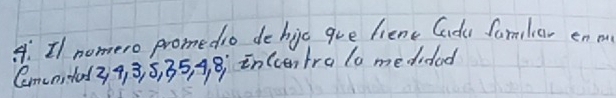 4. El nomero promedio de hijo que liene Cada familiar en mi
Comunidad 2,4,3,5,3,5,4,8, Encuentra la medidad